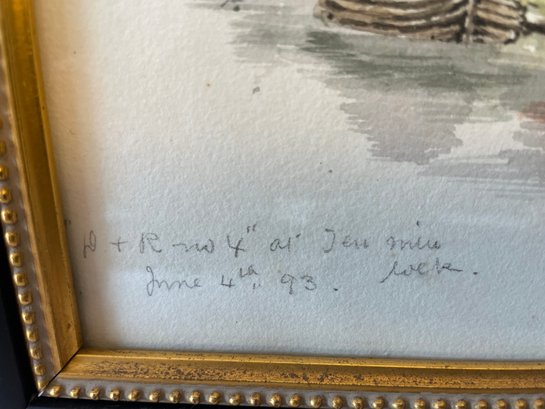 "D + R no 4" at Ten mile
June 4th. 93. lock.